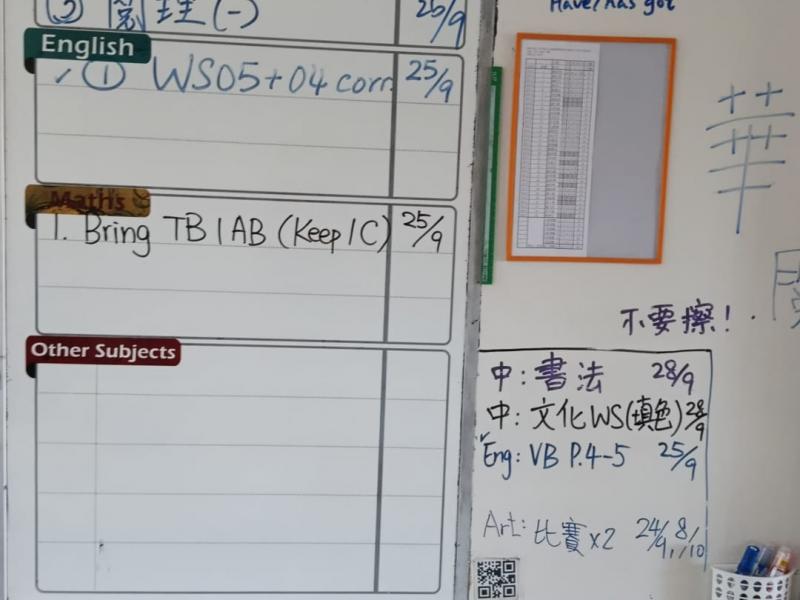 理(一) 25/9
Have/has got
English
✓ ① WS05+04 corr. 25/9
Maths
1. Bring TB1AB (Keep1C) 25/9
Other Subjects
華
不要擦!
中: 書法 28/9
中: 文化WS(填色) 28/9
✓Eng: VB P.4-5 25/9
Art: 比賽x2 24/9, 8/10